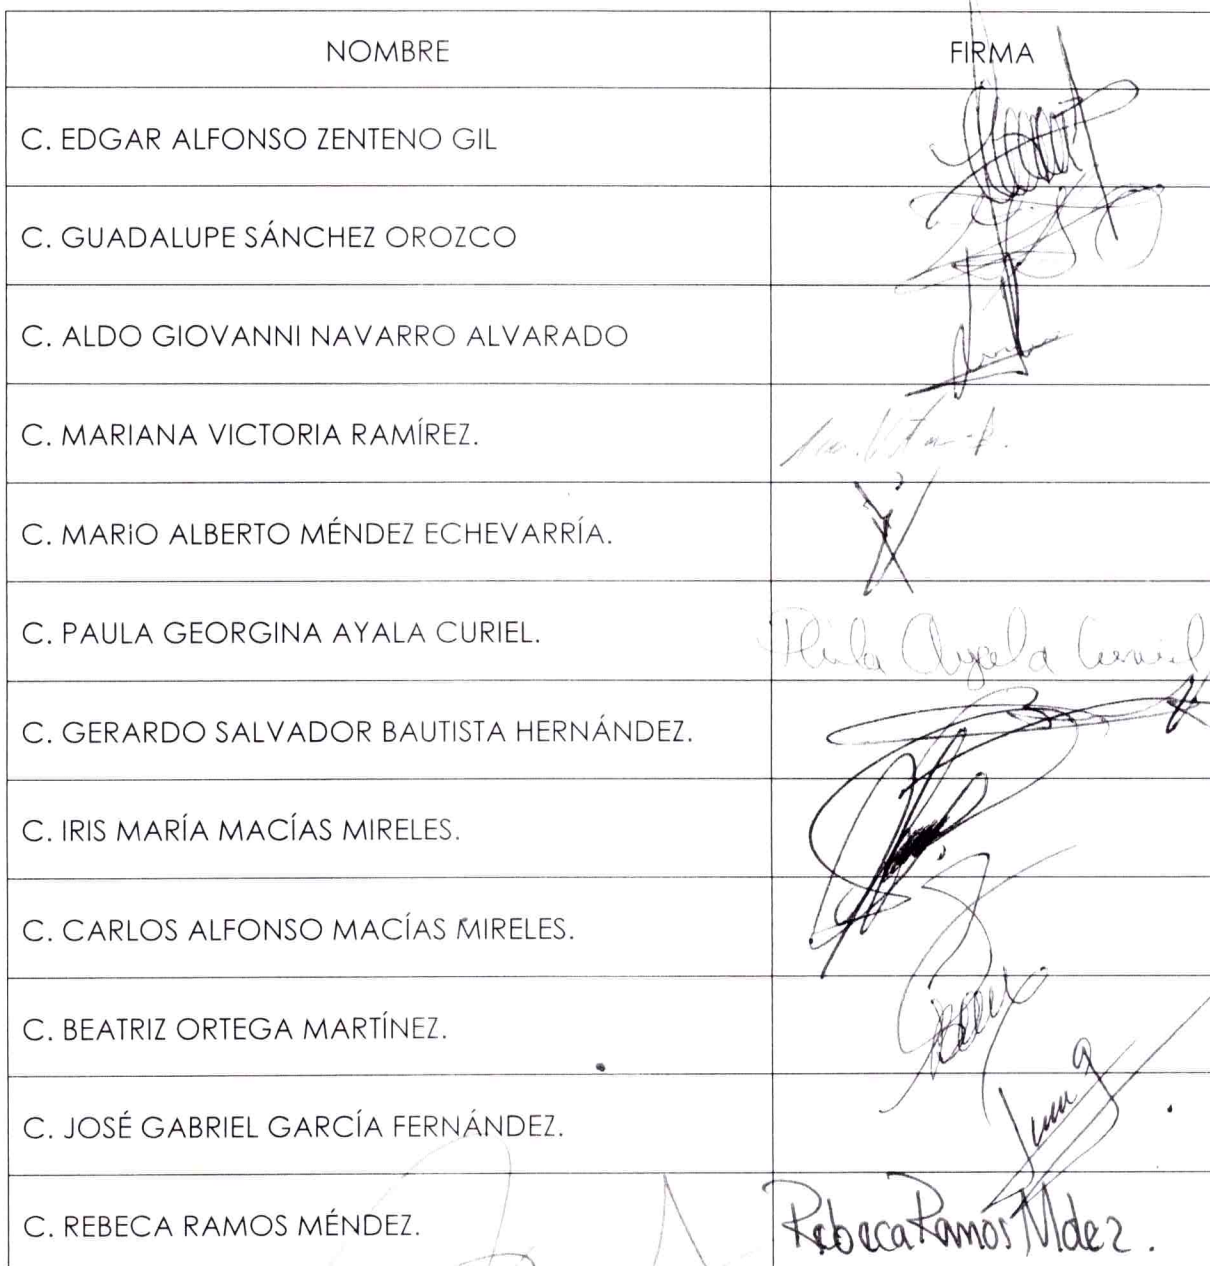 NOMBRE FIRMA
C. EDGAR ALFONSO ZENTENO GIL
C. GUADALUPE SÁNCHEZ OROZCO
C. ALDO GIOVANNI NAVARRO ALVARADO
C. MARIANA VICTORIA RAMÍREZ.
C. MARIO ALBERTO MÉNDEZ ECHEVARRÍA.
C. PAULA GEORGINA AYALA CURIEL. Ayala Curiel
C. GERARDO SALVADOR BAUTISTA HERNÁNDEZ.
C. IRIS MARÍA MACÍAS MIRELES.
C. CARLOS ALFONSO MACÍAS MIRELES.
C. BEATRIZ ORTEGA MARTÍNEZ.
C. JOSÉ GABRIEL GARCÍA FERNÁNDEZ.
C. REBECA RAMOS MÉNDEZ. Rebeca Ramos Mdez.